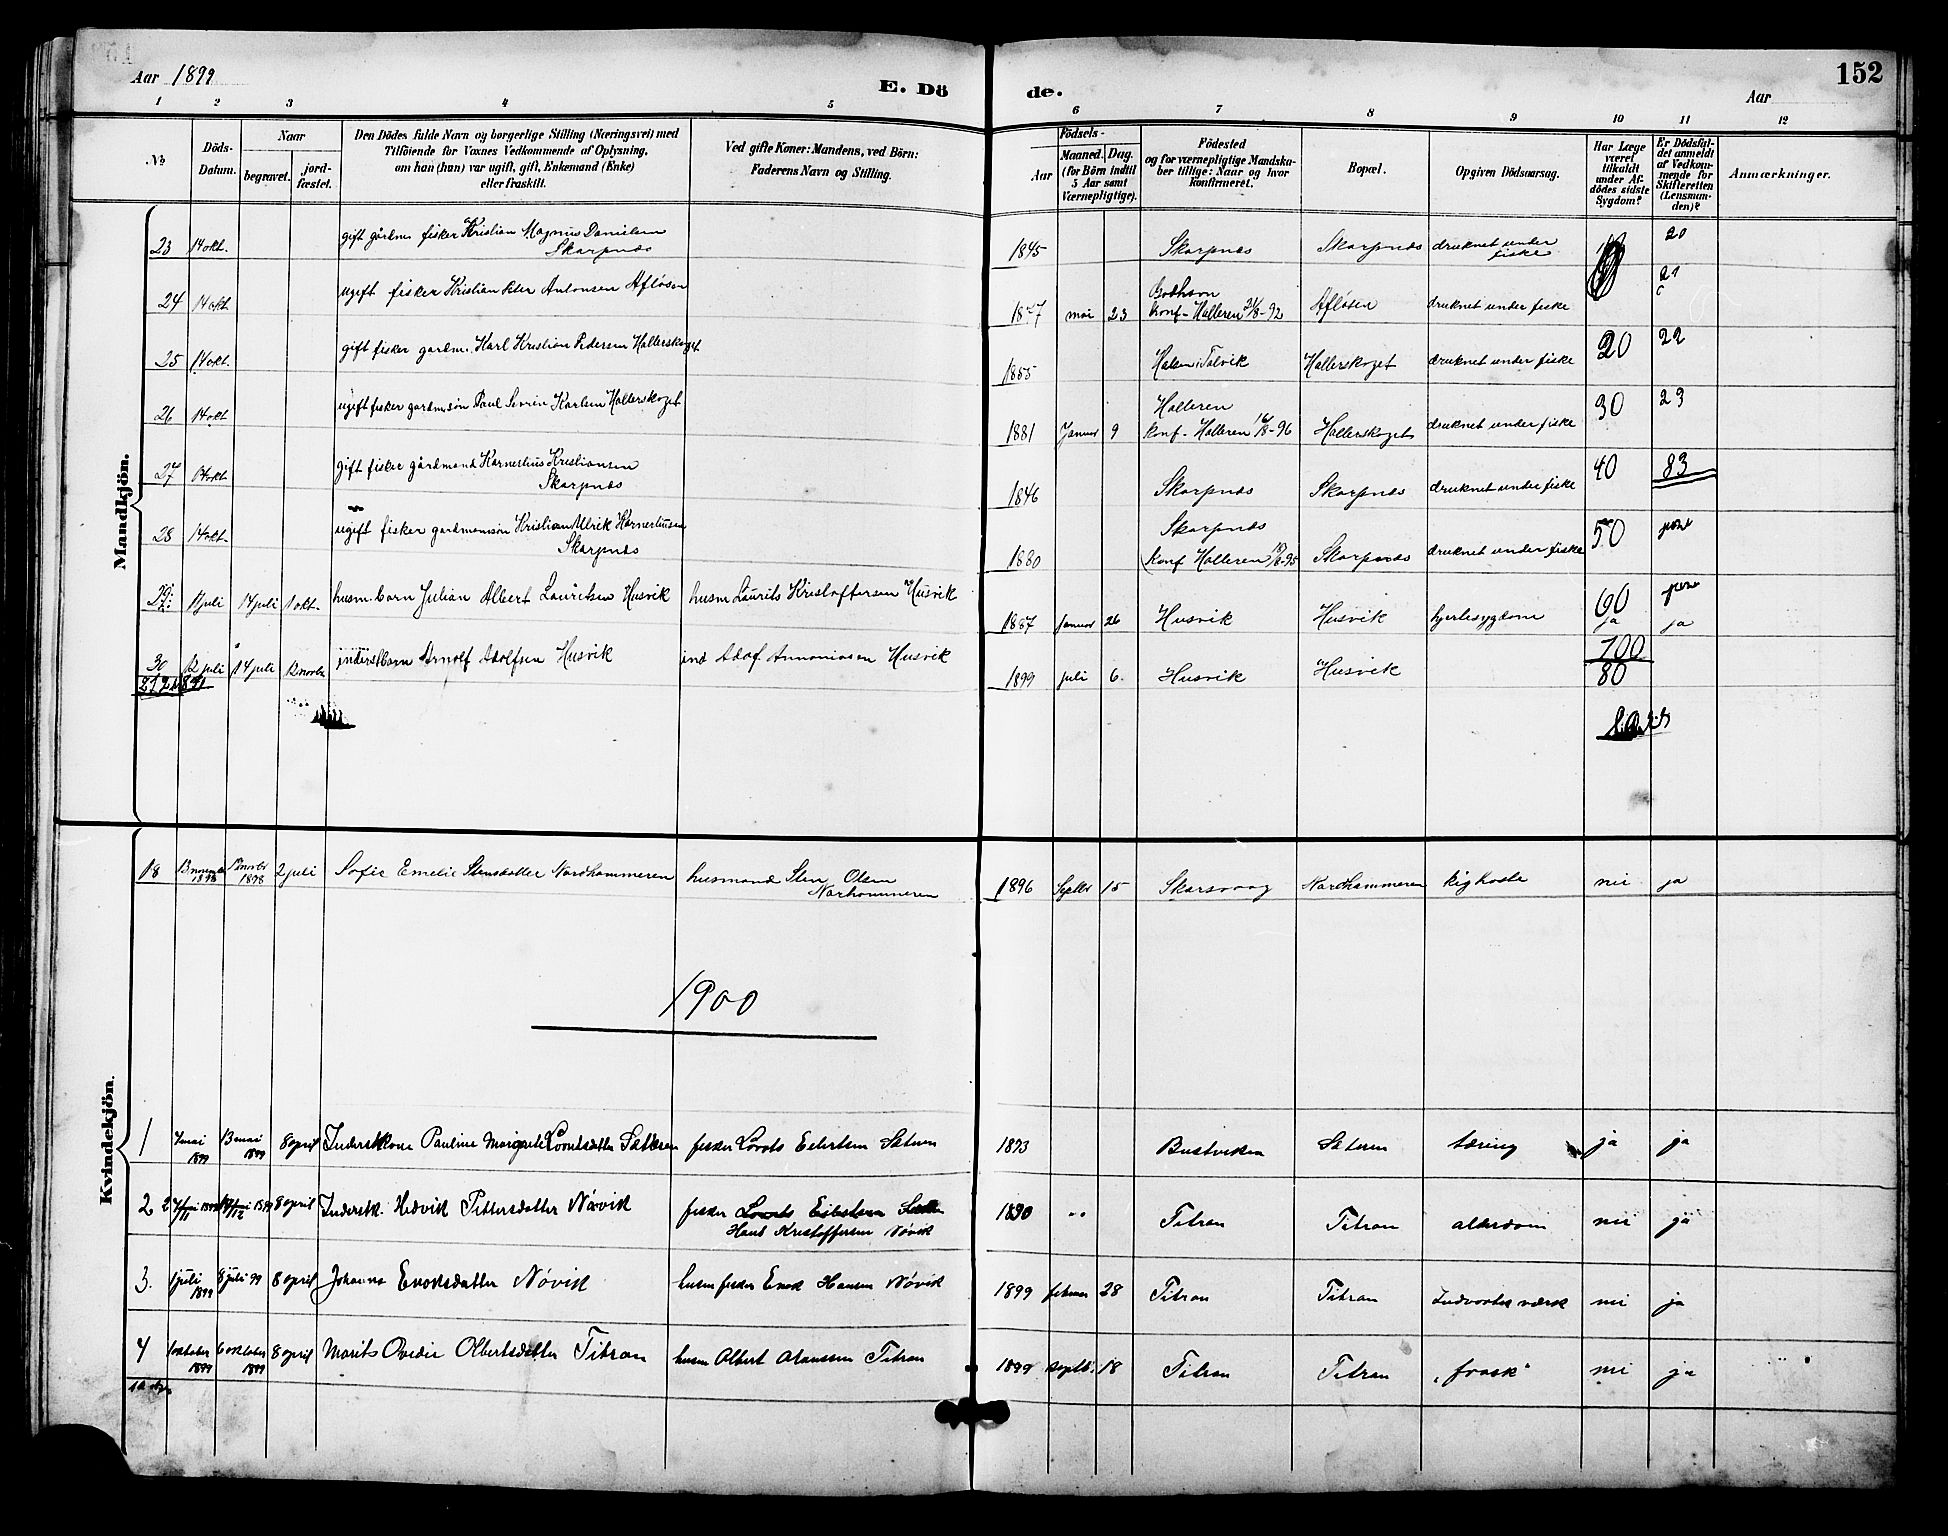 Aar 1899
E. Dö
de.
152
Aar
1 2 3 4 5 6 7 8 9 10 11 12
No
Döds-
Datum.
Naar
begravet.
jord-
fæstet.
Den Dödes fulde Navn og borgerlige Stilling (Næringsvei) med
Tilföiende for Voxnes Vedkommende af Oplysning,
om han (hun) var ugift, gift, Enkemand (Enke)
eller fraskilt.
Ved gifte Koner: Mandens, ved Börn:
Faderens Navn og Stilling.
Födsels-
Aar
Maaned. Dag.
(for Börn indtil
5 Aar samt
Værnepligtige).
Födested
og for værnepligtige Mandska-
ber tillige: Naar og hvor
konfirmeret.
Bopæl.
Opgiven Dödsaarsag.
Har Læge
været
tilkaldt
under Af-
dödes sidste
Sygdom?
Er Dödsfal-
det anmeldt
af Vedkom-
mende for
Skifteretten
(Lensman-
den)?
Anmærkninger.
Mandkjön.
23 14 okt. gift gårdm. fisker Kristian Magnus Danielsen
Skarpnæs
1845 Skarpnæs Skarpnæs druknet under
fiske
20
24 14 okt ugift fisker Kristian Peter Antonsen Afløsen
1877 mai 23 konf- Halleren 21/8-92 Afløsen druknet under fiske
21
25 14 okt. gift fisker gardm. Karl Kristian Pedersen Hallerskoget
1855 Halsen i Talvik Hallerskoget druknet under fiske 20 22
26 14 okt ugift fisker gardmsøn Paul Sevrin Karlsen Hallerskoget
1881 Januar 9 Halleren
konf- Halleren 16/8-96 Hallerskoget druknet under fiske 30 23
27 14 okt. gift fisker gårdmand Kornelius Kristiansen
Skarpnæs
1846 Skarpnæs Skarpnæs druknet under fiske 40 83
28 14 okt. ugift fisker gardmansøn Kristian Ulrik Kornelius
Skarpnæs
1880 Skarpnæs
Konf Halleren Skarpnæs druknet under fiske 50
29. 11 juli 14 juli 1 okt. husm. barn Julian Albert Lauritsen Husvik husm Laurits Kristoffersen Husvik
1887 Januar 26 Husvik Husvik hjertesygdom 60
ja ja
30 12 juli 14 juli 12 novbr inderstbarn Arnolf Adolfsen Husvik ind Adolf Antoniosen Husvik
1899 juli 6. Husvik Husvik 100
80
Kvindekjön.
18 13 novembr
1898 novbr
1898 2 juli Sofie Emelie Stensdatter Nordhammeren husmand Sten Olsen
Norhammeren
1896 Septbr 15 Skarsvaag Nordhammeren kighoste nei ja
1900
1 7 mai
1899 13 mai
1899 8 april Inderstkone Pauline Margrete Lorntsdatter Sætteren fisker Lorats Eilertsen Sæteren
1873 Bustviken Sæteren tæring ja ja
2 8 april Inderstk. Hedvik Pettersdatter Nøvik fisker Lorats Eilertsen
Hans Kristoffersen Nøvik
1830 " Titran Titran alderdom nei ja
3. 1 juli
1899 8 juli 99 8 april Johanna Enoksdatter Nøvik husm fisker Enok Hansen Nøvik
1899 februar 28 Titran Titran Indvortes værk nei ja
4 1 oktober
1899 6 oktober
1899 8 april Marits Ovedie Olbertsdatter Titran husm Albert Titran
1899 septb. 18 Titran Titran "frosk" nei ja